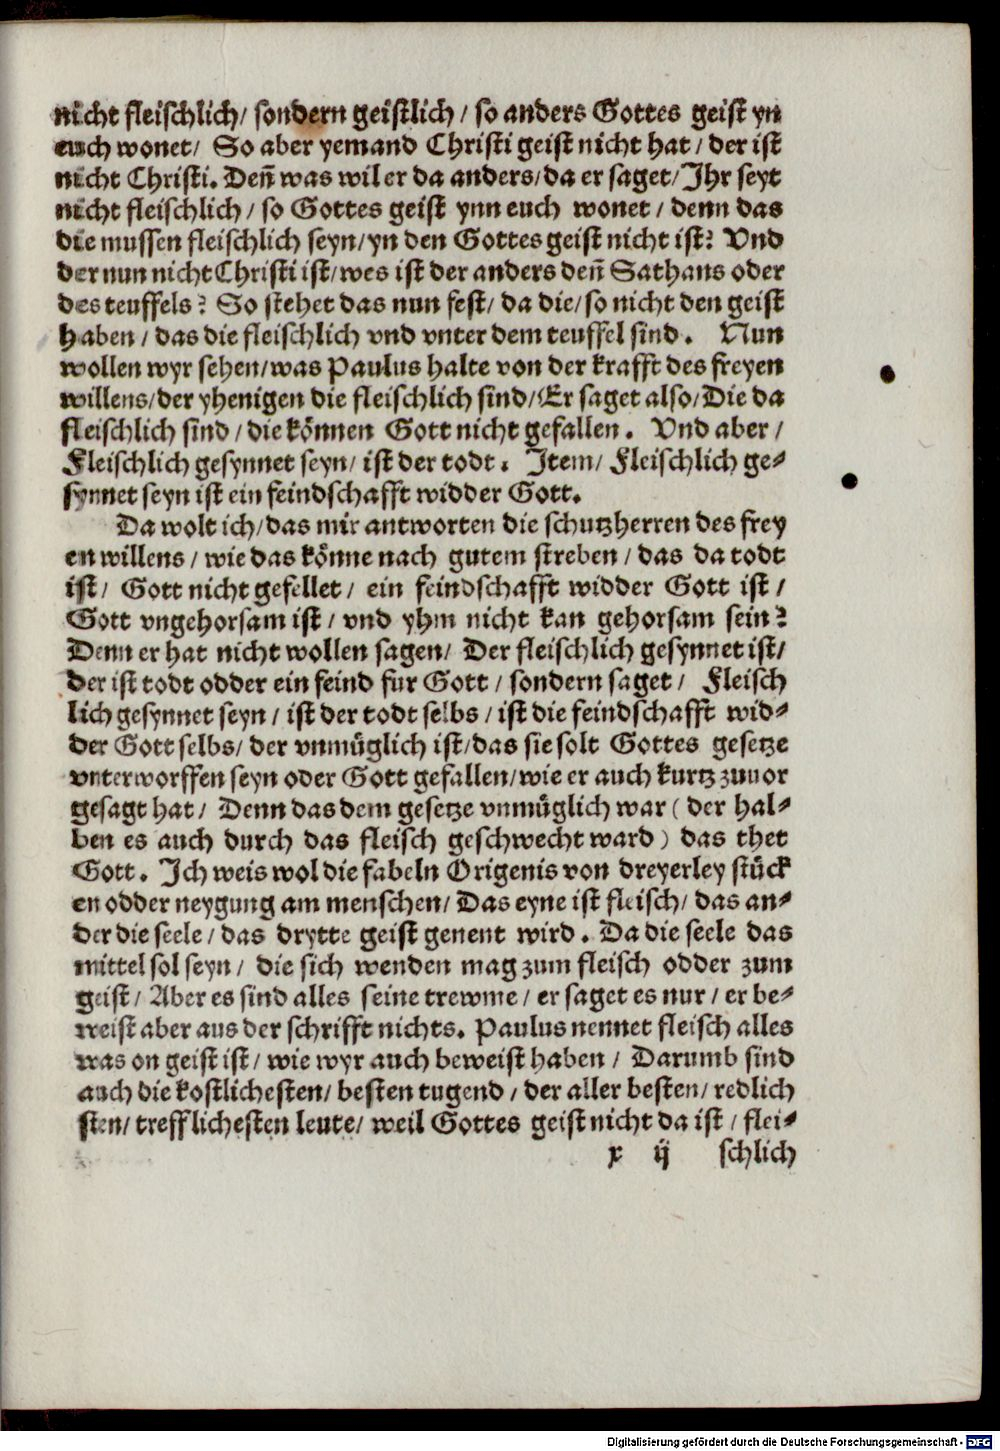 nicht fleischlich/ sondern geistlich/ so anders Gottes geist yn
euch wonet/ So aber yemand Christi geist nicht hat/ der ist
nicht Christi. Deñ was wil er da anders/da er saget/Ihr seyt
nicht fleischlich/ so Gottes geist ynn euch wonet/ denn das
die mussen fleischlich seyn/yn den Gottes geist nicht ist? Vnd
der nun nicht Christi ist/wes ist der anders deñ Sathans oder
des teuffels? So stehet das nun fest/ da die/so nicht den geist
haben/ das die fleischlich vnd vnter dem teuffel sind. Nun
wollen wyr sehen/was Paulus halte von der krafft des freyen
willens/der yhenigen die fleischlich sind/Er saget also/Die da
fleischlich sind/die können Gott nicht gefallen. Vnd aber/
Fleischlich gesynnet seyn/ ist der todt. Item/ Fleischlich ge⸗
synnet seyn ist ein feindschafft widder Gott.
Da wolt ich/das mir antworten die schutzherren des frey
en willens/ wie das könne nach gutem streben/ das da todt
ist/ Gott nicht gefellet/ ein feindschafft widder Gott ist/
Gott vngehorsam ist/ vnd yhm nicht kan gehorsam sein?
Denn er hat nicht wollen sagen/ Der fleischlich gesynnet ist/
der ist todt odder ein feind fur Gott/ sondern saget/ Fleisch
lich gesynnet seyn/ ist der todt selbs/ ist die feindschafft wid⸗
der Gott selbs/ der vnmüglich ist/das sie solt Gottes gesetze
vnterworffen seyn oder Gott gefallen/wie er auch kurtz zuuor
gesagt hat/ Denn das dem gesetze vnmüglich war ( der hal⸗
ben es auch durch das fleisch geschwecht ward) das thet
Gott. Ich weis wol die fabeln Origenis von dreyerley stück
en odder neygung am menschen/ Das eyne ist fleisch/ das an⸗
der die seele/ das drytte geist genent wird. Da die seele das
mittel sol seyn/ die sich wenden mag zum fleisch odder zum
geist/ Aber es sind alles seine trewme/ er saget es nur/ er be⸗
weist aber aus der schrifft nichts. Paulus nennet fleisch alles
was on geist ist/ wie wyr auch beweist haben/ Darumb sind
auch die kostlichesten/ besten tugend/ der aller besten/ redlich
sten/ trefflichesten leute/ weil Gottes geist nicht da ist/ flei⸗
x ij schlich
Digitalisierung gefördert durch die Deutsche Forschungsgemeinschaft - DFG